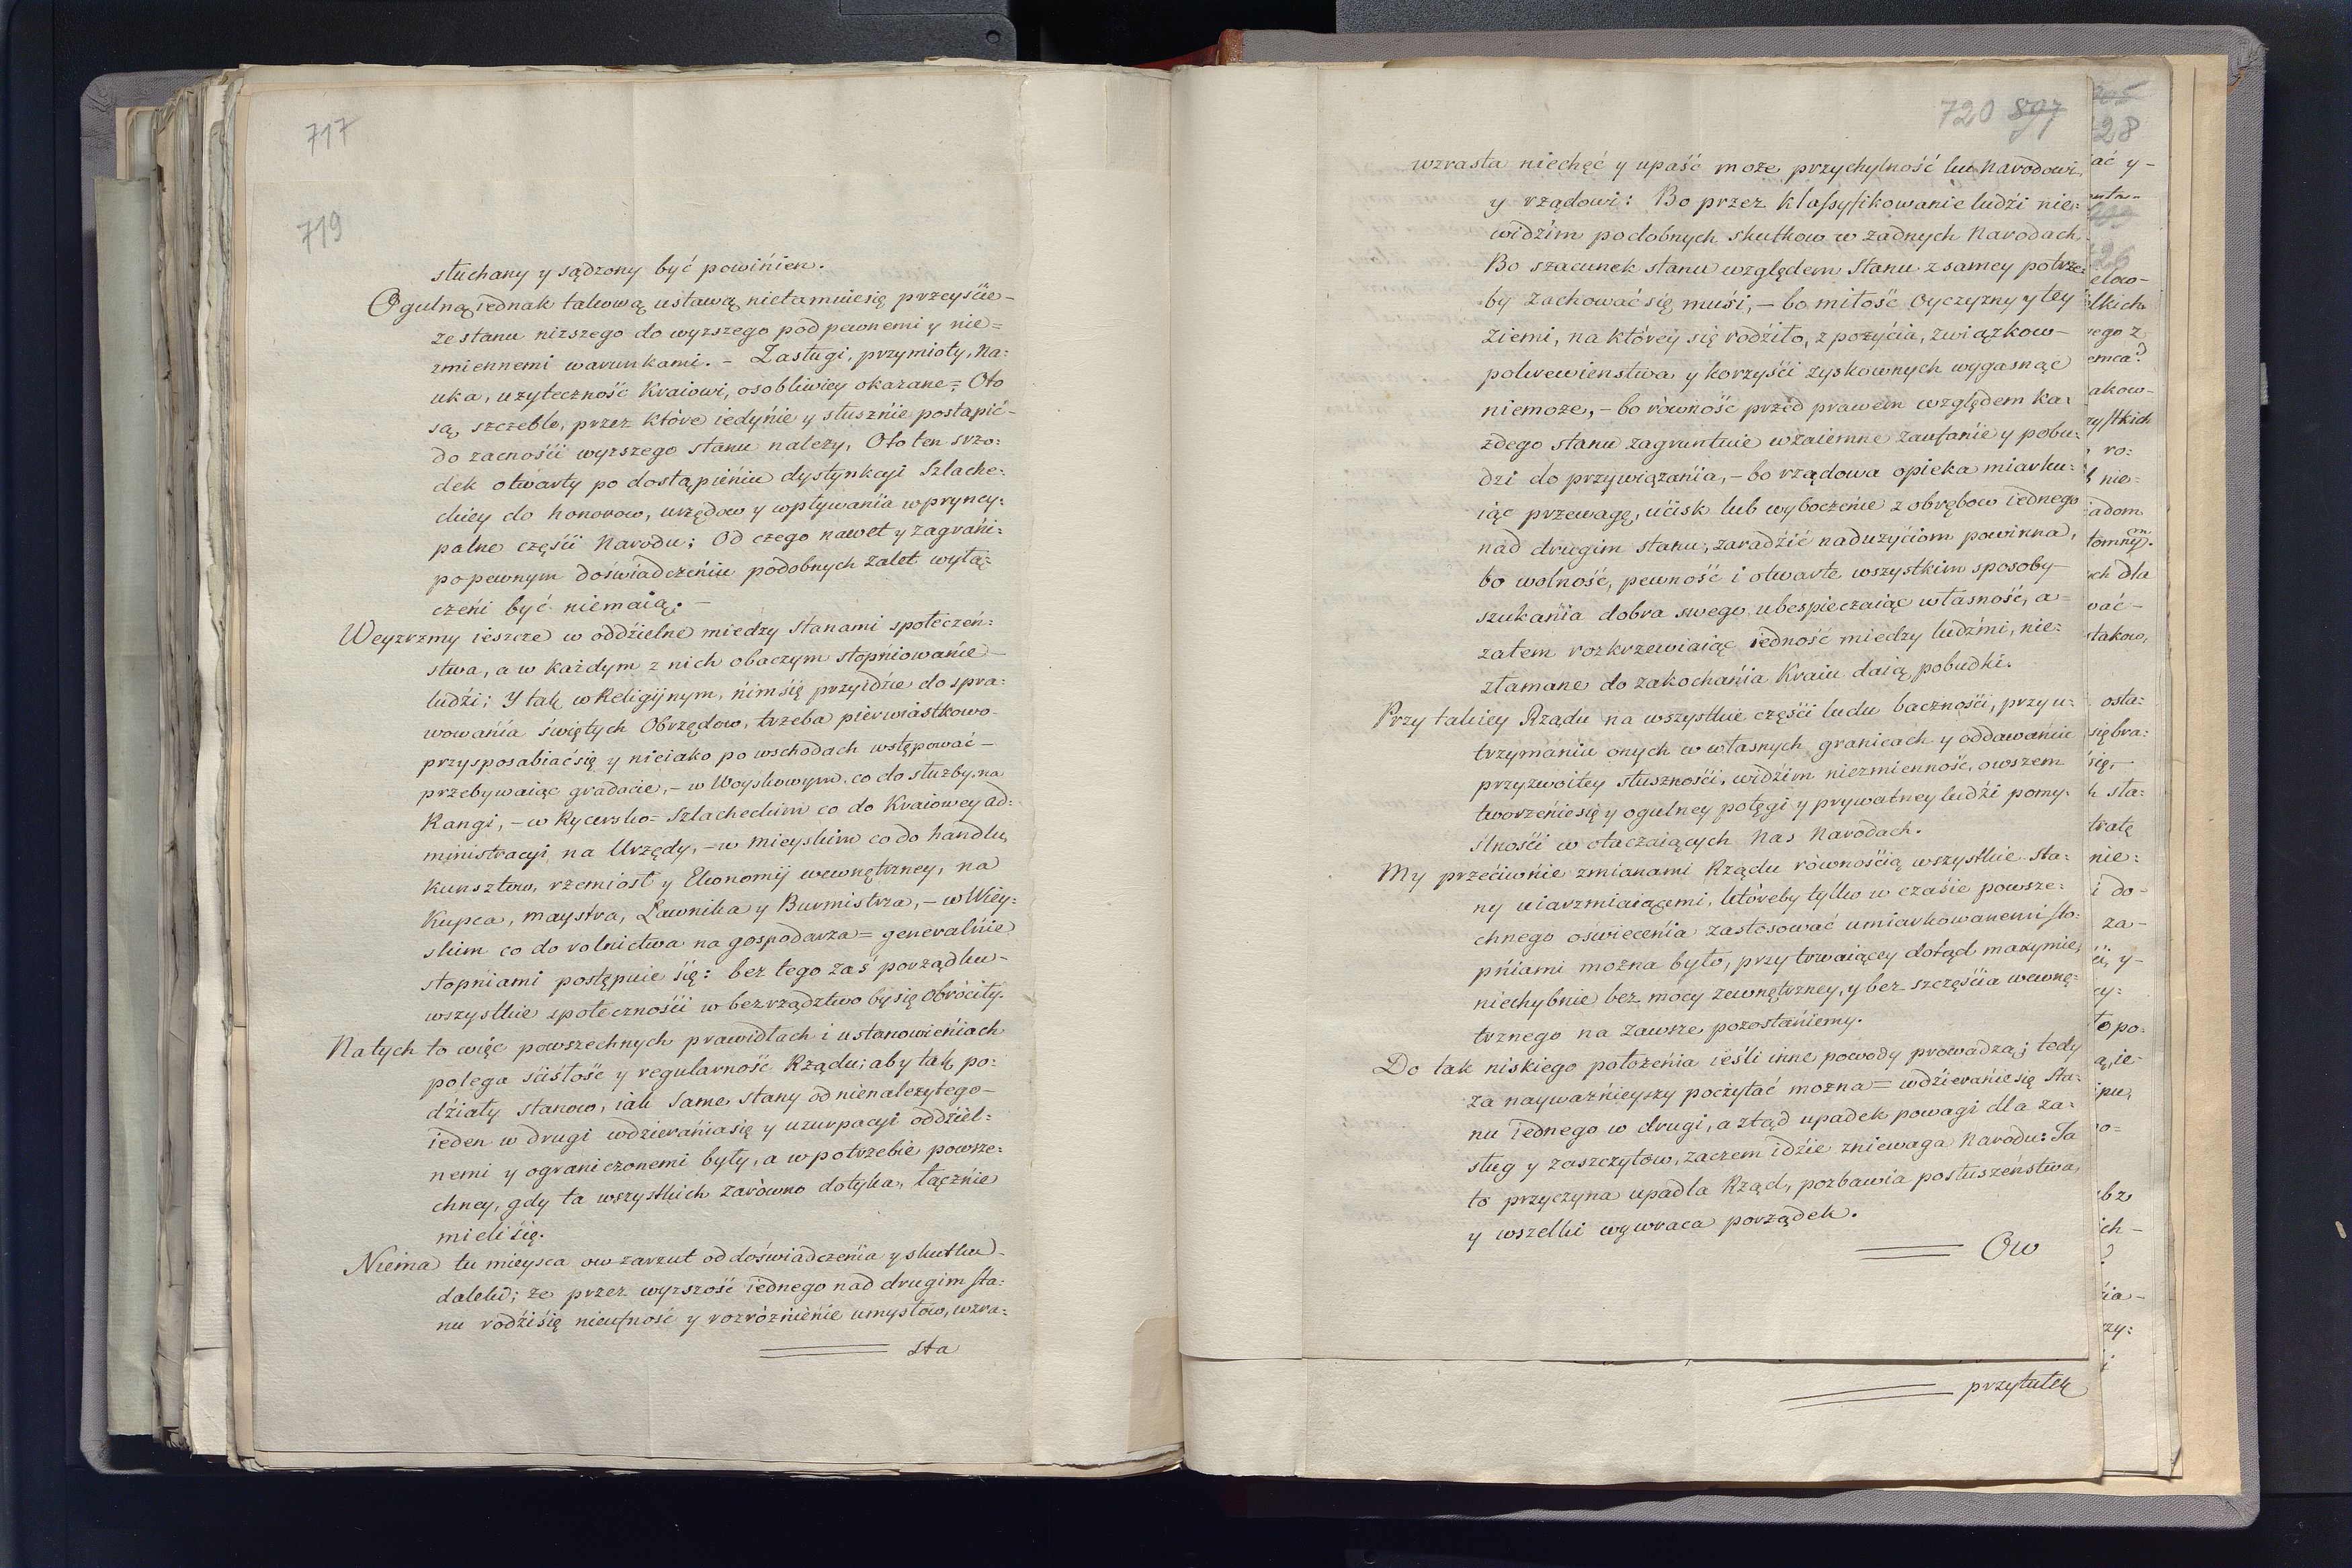 717
719
słuchany y sądzony być powinien.
Ogulną iednak takową ustawą nietamuie się przeyście -
ze stanu niższego do wyższego pod pewnemi y nie=
zmiennemi warunkami. - Zasługi, przymioty, Na:
uka, użyteczność Kraiowi, osobliwiey okazane = Oto
są szczeble, przez które iedynie y słusznie postąpić -
do zacności wyższego stanu należy, Oto ten szro:
dek otwarty po dostąpieniu dystynkcyi Szlache:
ckiey do honorow, urzędow y wpływania w pryncy:
palne części Narodu; Od czego nawet y zagrani:
po pewnym doświadczeniu podobnych zalet wyłą:
czeni być niemaią. -
Weyrzmy ieszcze w oddzielne między stanami społeczeń:
stwa, a w każdym z nich obaczym stopniowanie -
ludzi; Y tak w Religijnym, nim się przyidzie do spra:
wowania świętych Obrzędow, trzeba pierwiastkowo -
przysposabiać się y nieiako po wschodach wstępować -
przebywaiąc gradacie, - w Woyskowym co do służby na
Rangi, - w Rycersko = Szlacheckim co do Kraiowey ad:
ministracyi na Urzędy, - w mieyskim co do handlu,
kunsztow, rzemiosł y Ekonomij wewnętrzney, na
Kupca, maystra, Ławnika y Burmistrza, - w Wiey:
skim co do rolnictwa na gospodarza = generalnie
stopniami postępuie się: bez tego zaś porządku -
wszystkie społeczności w bezrządztwo by się obróciły.
Na tych to więc powszechnych prawidłach i ustanowieniach
polega ścisłość y regularność Rządu; aby tak po:
działy stanow, iak same stany od nienależytego -
ieden w drugi wdzierania się y uzurpacyi oddziel:
nemi y ograniczonemi były, a w potrzebie powsze:
chney, gdy ta wszystkich zarówno dotyka, łącznie
mieli się.
Niema tu mieysca ow zarzut od doświadczenia y skutku -
daleki; że przez wyższość iednego nad drugim sta:
nu rodzi się nieufność y rozróżnienie umysłow, wzra:
sta
720 807
wzrasta niechęć y upaść może przychylność ku Narodowi,
y rządowi: Bo przez klassyfikowanie ludzi nie:
widzim podobnych skutkow w żadnych Narodach,
Bo szacunek stanu względem stanu z samey potrze:
by zachować się musi, - bo miłość Oyczyzny y tey
ziemi, na którey się rodziło, z pożycia, związkow -
pokrewienstwa y korzyści zyskownych wygasnąć
niemoże, - bo równość przed prawem względem ka:
żdego stanu zagruntuie wzaiemne zaufanie y pobu:
dzi do przywiązania, - bo rządowa opieka miarku:
iąc przewagę, ucisk lub wyboczenie z obrębow iednego
nad drugim stanu, zaradzić nadużyciom powinna,
bo wolność, pewność i otwarte wszystkim sposoby -
szukania dobra swego ubespieczaiąc własność, a -
zatem rozkrzewiaiąc iedność miedzy ludźmi, nie:
złamane do zakochania Kraiu daią pobudki.
Przy takiey Rządu na wszystkie części ludu baczności, przy u:
trzymaniu onych w własnych granicach y oddawaniu
przyzwoitey słuszności, widzim niezmienność, owszem
tworzenie się y ogulney potęgi y prywatney ludzi pomy:
ślności w otaczaiących Nas Narodach.
My przeciwnie zmianami Rządu równością wszystkie sta:
ny uiarzmiaiącemi, któreby tylko w czasie powsze:
chnego oświecenia zastosować umiarkowanemi sto:
pniami można było, przy trwaiącey dotąd maxymie,
niechybnie bez mocy zewnętrzney, y bez szczęścia wewnę:
trznego na zawsze pozostaniemy.
Do tak niskiego położenia ieśli inne powody prowadzą; tedy
za naywaźnieyszy poczytać można = wdzieranie się sta:
nu iednego w drugi, a ztąd upadek powagi dla za:
sług y zaszczytow, zaczem idzie zniewaga Narodu: Ta
to przyczyna upadla Rząd, pozbawia posłuszeństwa,
y wszelki wywraca porządek.
Ow
przytułek
28
26
ać y -
elow -
lkich
ego z
emca?
akow -
zystkich
ro:
nie =
iadom
tomney.
ch dla
wać -
takow,
osta:
się bra:
się, -
h sta:
tratę
nie:
i do -
za -
y -
cy:
to po:
ą, ie -
ipu,
o =
ich -
ia -
rzy: